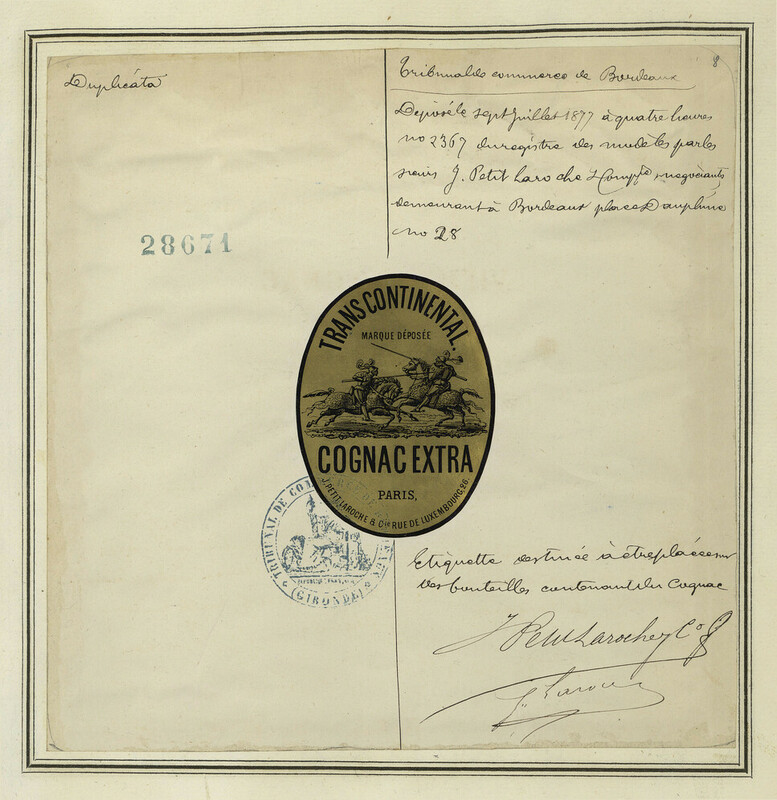 Duplicata
8
Tribunal de commerce de Bordeaux
Déposé le sept Juillet 1877 à quatre heures
no 2367 du registre des modèles par les
sieurs J. Petit Laroche & Compie négociants
demeurant à Bordeaux place Dauphine
no 28
28671
TRANSCONTINENTAL.
MARQUE DÉPOSÉE
COGNAC EXTRA
PARIS,
J. PETIT, LAROCHE & Cie RUE DE LUXEMBOURG, 26.
TRIBUNAL DE COM
(GIRONDE)
Etiquette destinée à être placée sur
des bouteilles contenant du Cognac
J Petit Laroche & Co
Laroche